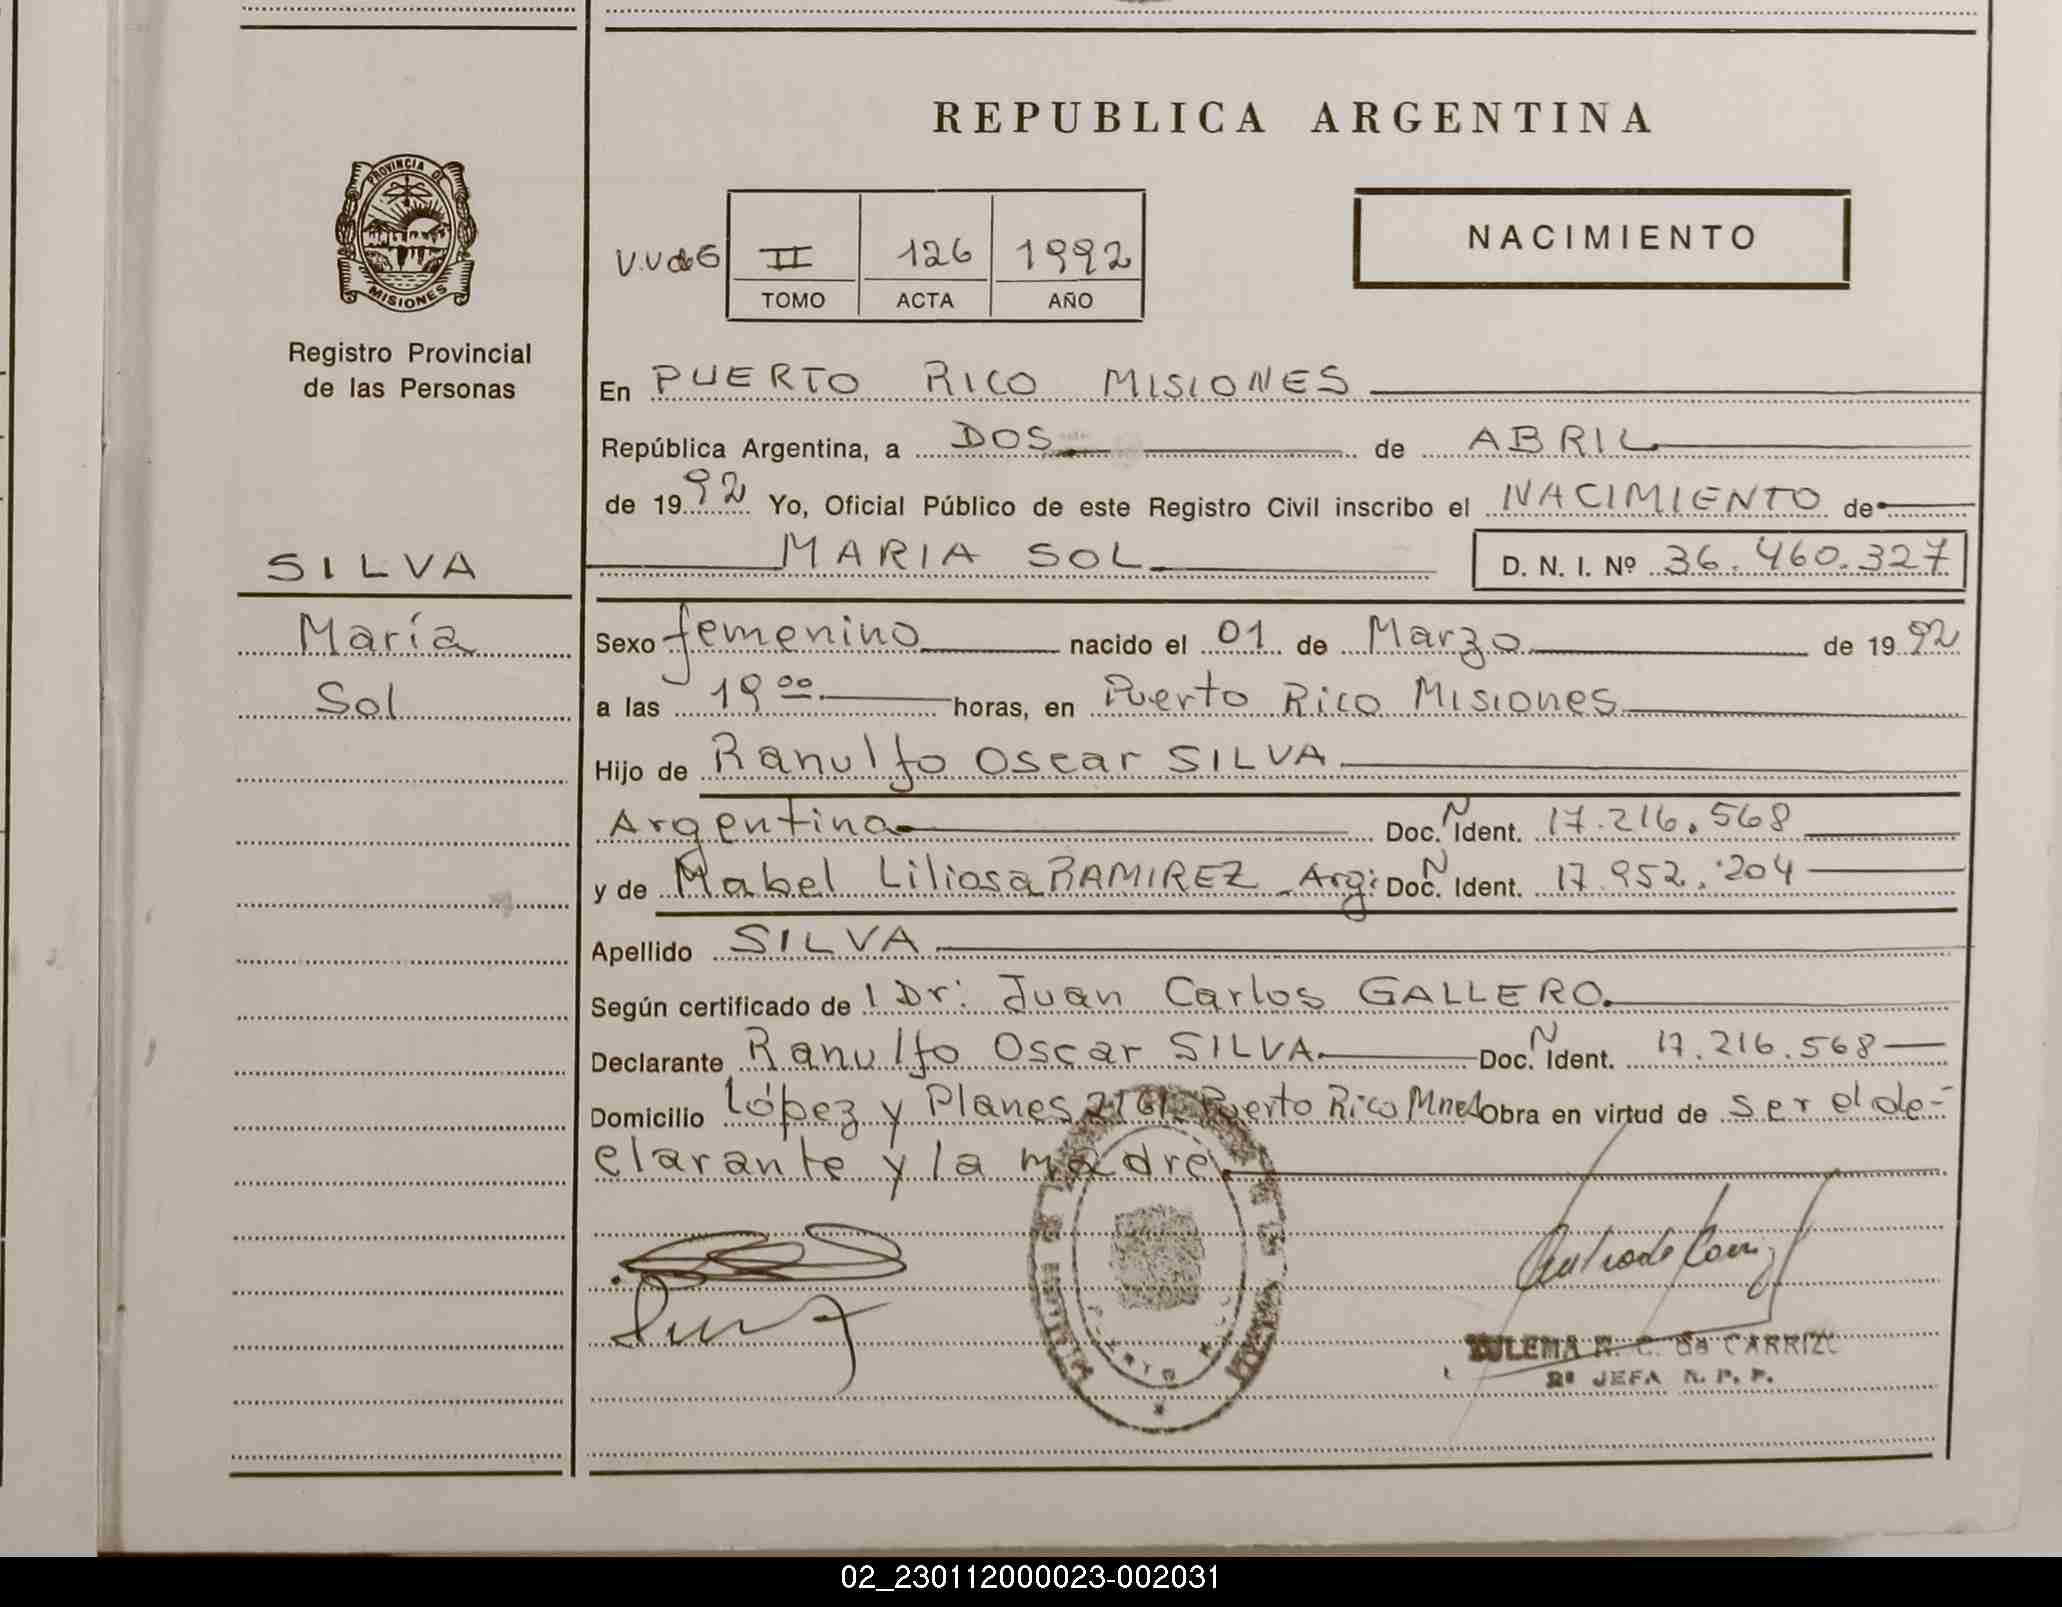 REPUBLICA ARGENTINA
PROVINCIA DE
MISIONES
Registro Provincial
de las Personas
NACIMIENTO
II 126 1992
TOMO ACTA AÑO
En PUERTO RICO MISIONES
República Argentina, a DOS de ABRIL
de 1992 Yo, Oficial Público de este Registro Civil inscribo el NACIMIENTO de
MARIA SOL D. N. I. Nº 36.460.327
SILVA
María
Sol
Sexo femenino nacido el 01 de Marzo de 1992
a las 19 00 horas, en Puerto Rico Misiones
Hijo de Ranulfo Oscar SILVA
Argentina Doc. N Ident. 17.216.568
y de Mabel Liliosa RAMIREZ Arg: Doc. N Ident. 17.952.204
Apellido SILVA
Según certificado de l Dr: Juan Carlos GALLERO
Declarante Ranulfo Oscar SILVA Doc. N Ident. 17.216.568
Domicilio López y Planes Puerto Rico Mnes Obra en virtud de ser el de-
clarante y la madre
ZULEMA R. C. de CARRIZO
2º JEFA R. P. P.
02_230112000023-002031